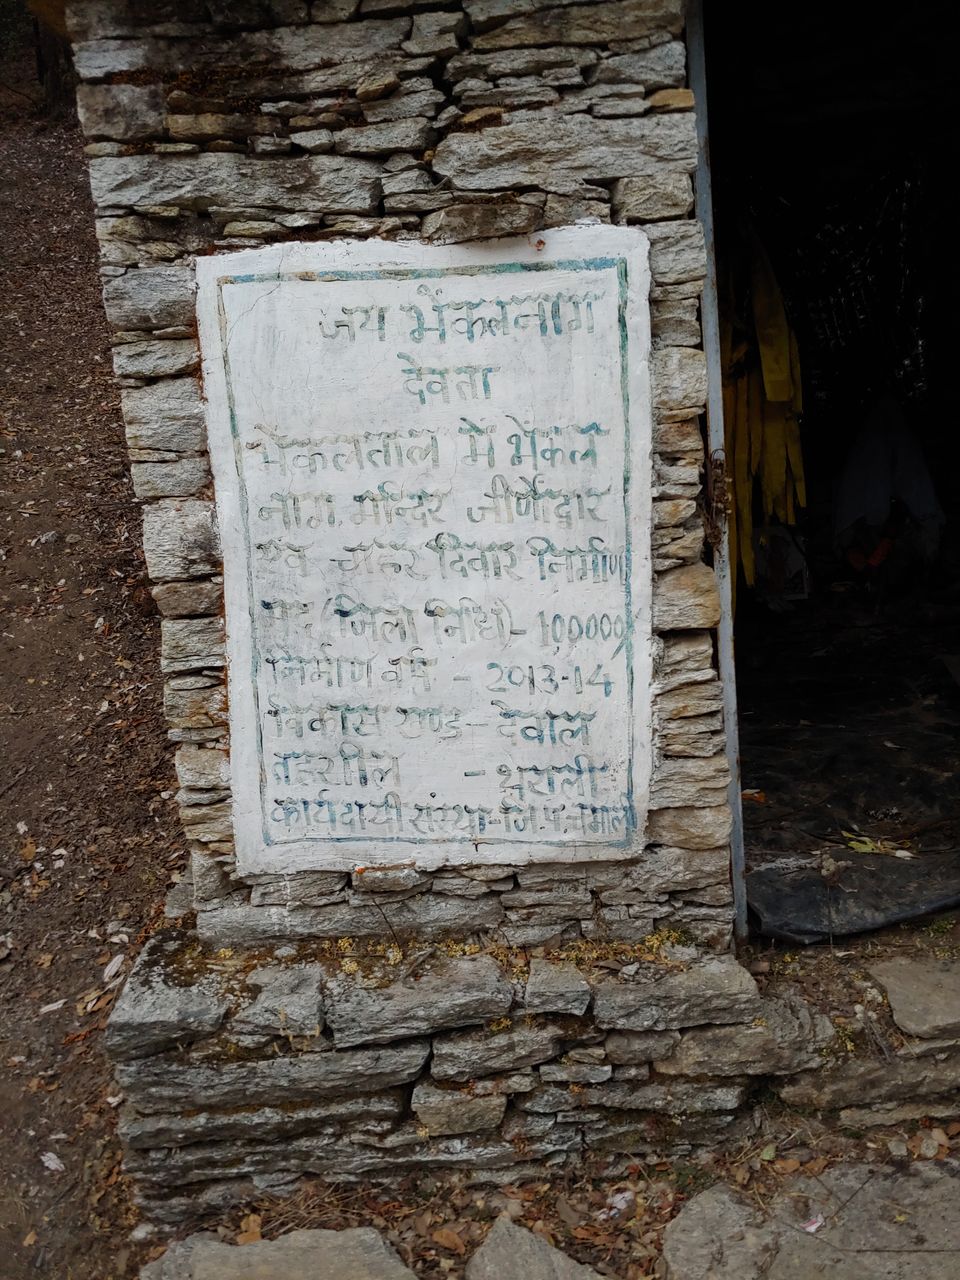 जय भैंकलनाग
देवता
भेंकलताल में भेंकल
नाग मन्दिर जीर्णोद्वार
एंव चाहर दिवार निर्माण
मद (जिला निधि)- 1,00000/
निर्माण वर्ष - 2013-14
विकास खण्ड - देवाल
तहसील - थराली
कार्यदायी संस्था-जि.पं.चमोली